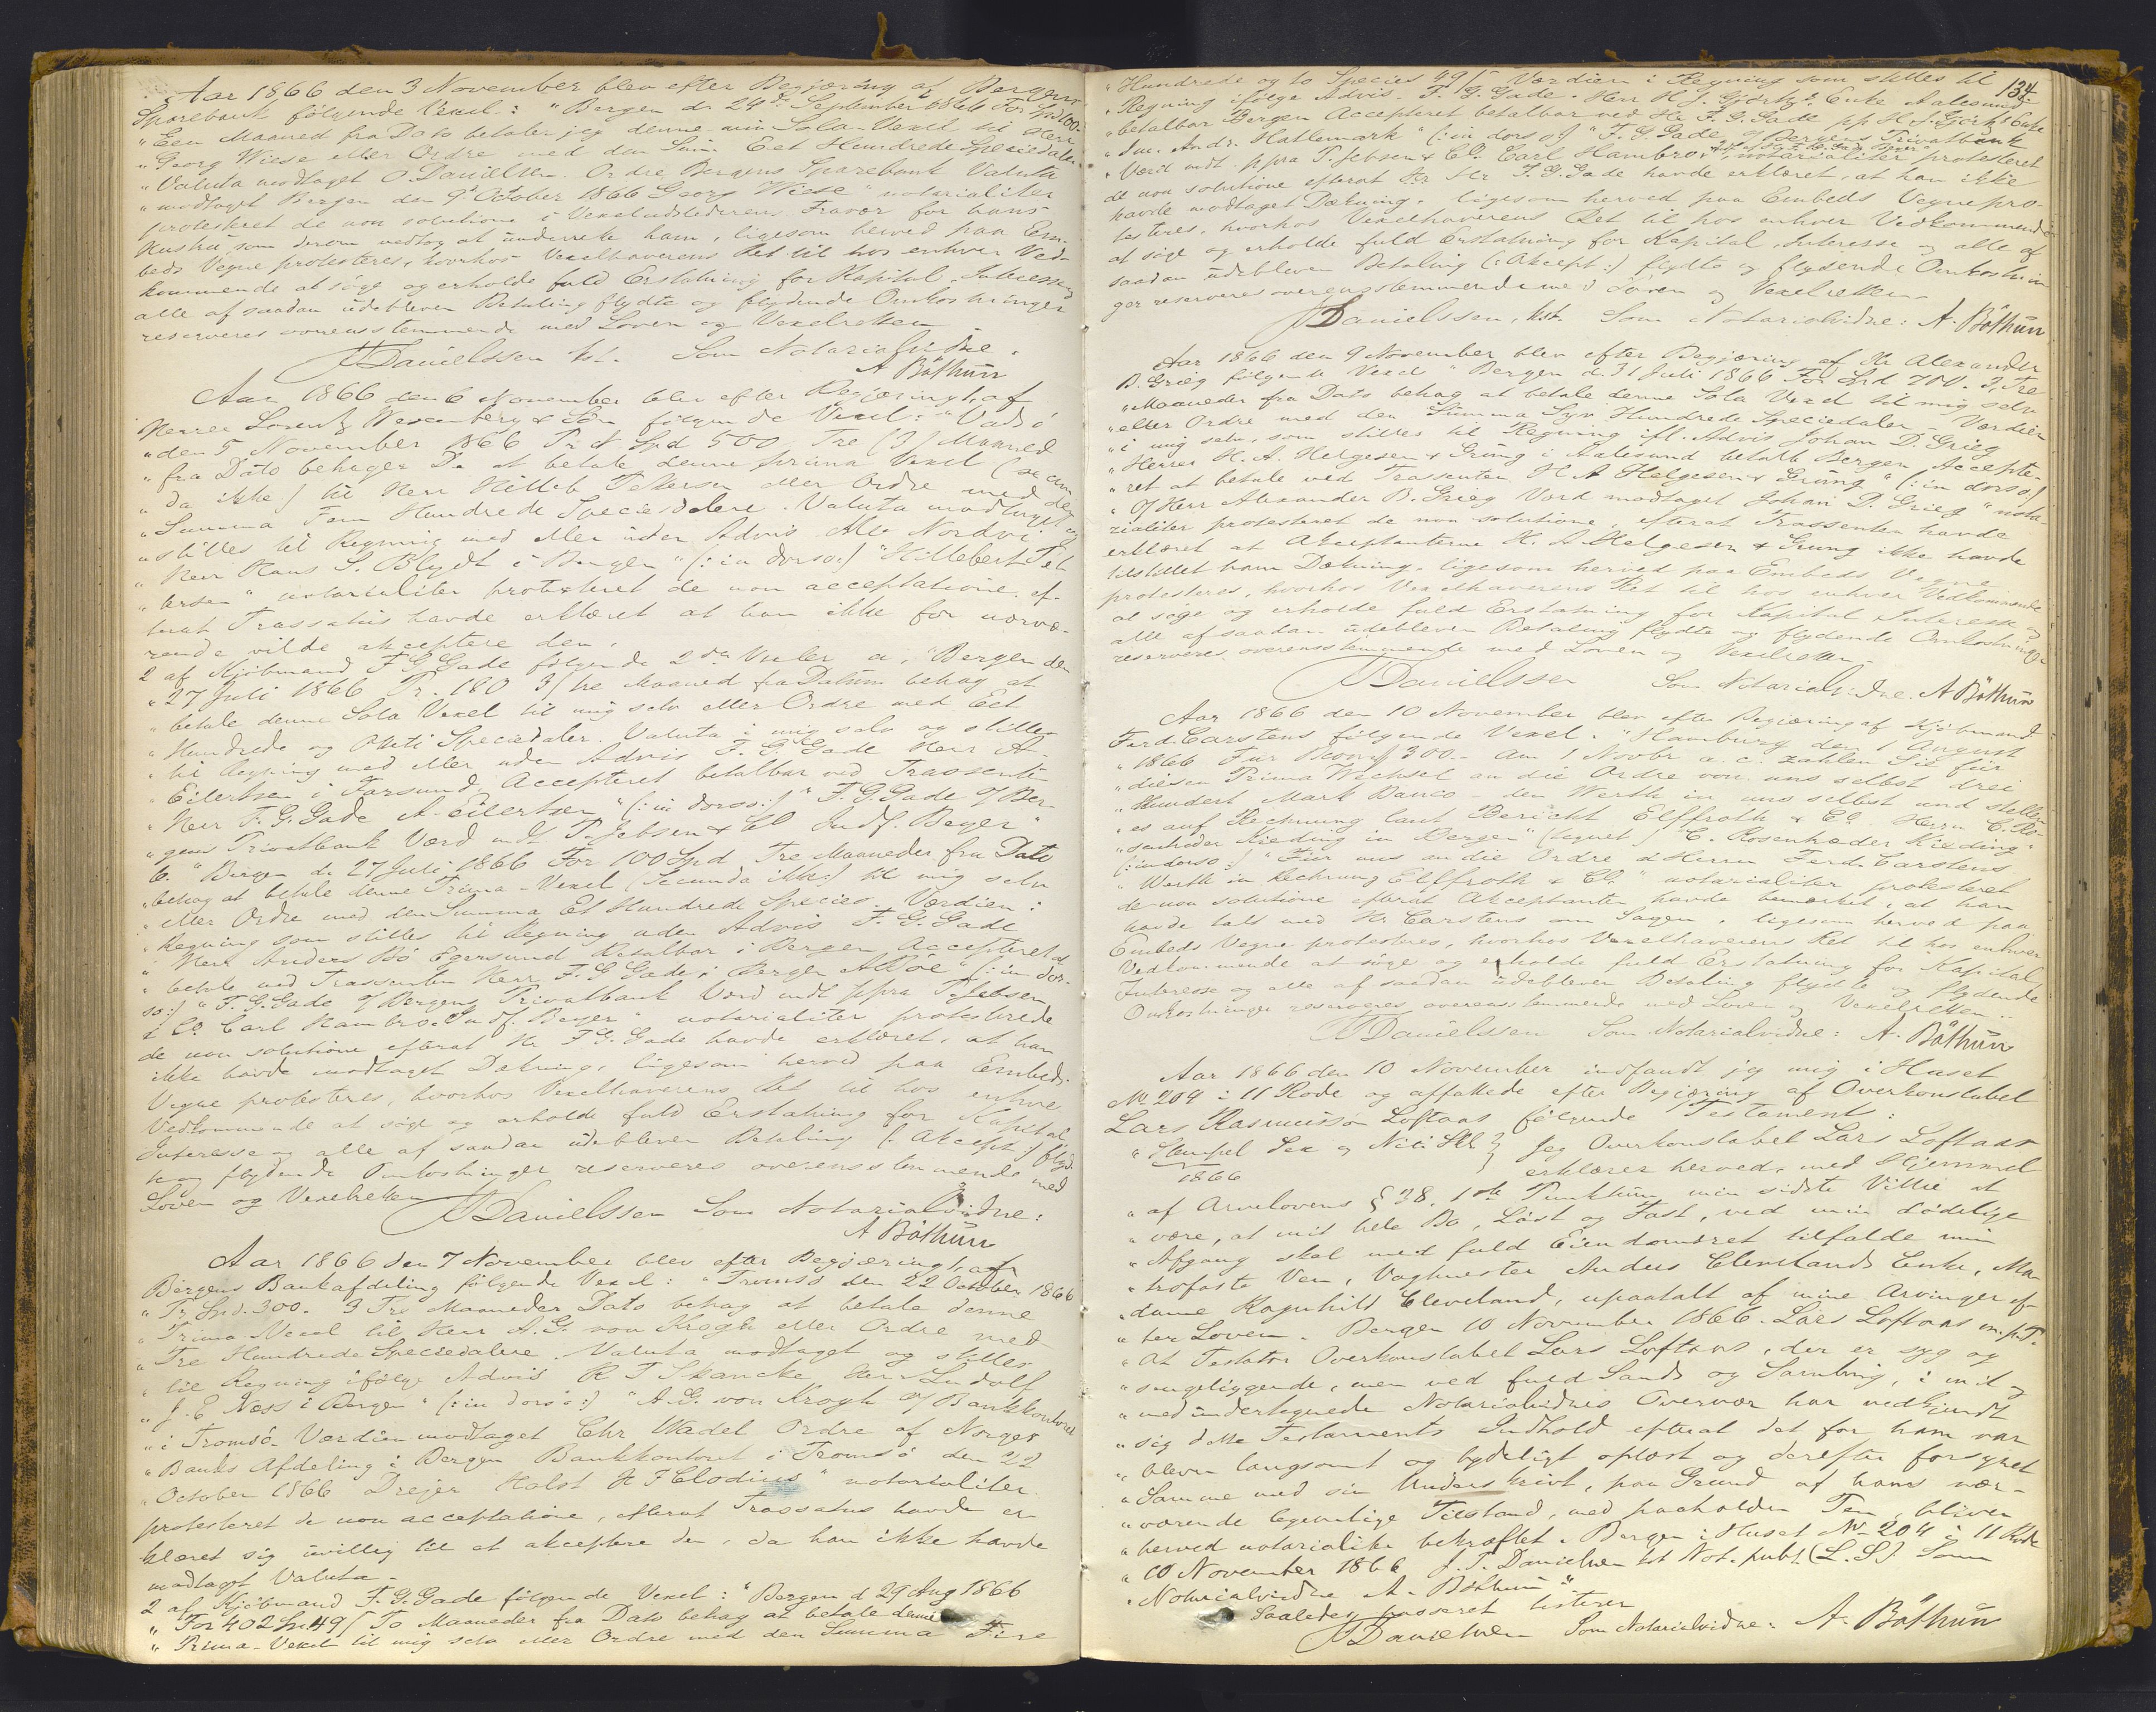 Aar 1866 den 3 November blev efter Begjæring af Bergens
Sparebank følgende Vexel: "Bergen dn 24de September 1866 For Spd 100.
"Een Maaned fra Dato betaler jeg denne min Sola-Vexel til Herr
"Georg Wiese eller Ordre med den Sum Eet Hundrede Speciedaler
"Valuta modtaget O Danielsen. Ordre Bergens Sparebank Valuta
"modtaget Bergen den 9de October 1866 Georg Wiese" notarialiter
protesteret de non solutione i Vexeludstederens Fravær for hans
Hustru som derom vedtog at underrette ham, ligesom herved paa Em-
beds Vegne protesteres, hvorhos Vexelhaverens Ret til hos enhver Ved-
kommende at søge og erholde fuld Erstatning for Kapital, Interesse og
alle af saadan udebleven Betaling flydte og flydende Omkostninger
reserveres overensstemmende med Loven og Vexelretten
JJDanielssen kst. Som Notarialvidne.
A Böthun
Aar 1866 den 6 November blev efter Begjæring 1, af
Herrer Lorentz Wesenberg & Søn følgende Vexel: "Vadsö
"den 5 November 1866 Pr Spd 500 Tre (3) Maaned
"fra Dato behager De at betale denne prima Vexel (secun
"da ikke) til Herr Hilleb Tellersen eller Ordre med den
"Summa Fem Hundrede Speciedalere. Valuta modtaget og
"stilles til Regning med eller uden Advis Alb Nordvi
"Herr Hans S. Blydt i Bergen" (: in dorso:) "Hillebert Tel
"lersen" notarialiter protesteret de non acceptatione, ef-
terat Trassatus havde erklæret at han ikke for nærvæ-
rende vilde akceptere den.
2 af Kjøbmand F G Gade følgende 2de Vexler a, "Bergen den
"27 Juli 1866 Pr. 180 3/ tre Maaned fra Datum behag at
"betale denne Sola Vexel til mig selv eller Ordre med Eet
"Hundrede og Otti Speciedaler. Valuta i mig selv og stilles
"til Regning med eller uden Advis F. G. Gade Herr A
"Eilertsen i Farsund Accepteret betalbar ved Trassenten
"Herr F. G. Gade A. Eilertsen" (: in dorso:) "F. G. Gade o/ Ber-
"gens Privatbank Værd mdt T. Jebsen & Co Indf. Beyer"
b. "Bergen dn 27 Juli 1866 For 100 Spd Tre Maaneder fra Dato
"behag at betale denne Prima-Vexel (Secunda ikke) til mig selv
"eller Ordre med den Summa Et Hundrede Species. Værdien i
"Regning som stilles til Regning uden Advis F. G. Gade
"Herr Anders Bö Egersund Betalbar i Bergen Accepteret at
"betale ved Trassenten Herr F. G Gade i Bergen A Böe" (: in dor-
so:) "F. G. Gade o/ Bergens Privatbank Værd mdt ppra T. Jebsen
& Co Carl Hambro. Indf. Beyer" notarialiter protesterede
de non solutione efterat Hr F G. Gade havde erklæret, at han
ikke havde modtaget Dækning, ligesom herved paa Embeds
Vegne protesteres, hvorhos Vexelhaverens Ret til hos enhver
Vedkommende at søge og erholde fuld Erstatning for Kapital
Interesse og alle af saadan udebleven Betaling (: Akcept :) flyd-
te og flydende Omkostninger reserveres overensstemmende med
Loven og Vexelretten
JJDanielssen Som Notarialvidne:
A Böthun
Aar 1866 den 7 November blev efter Begjæring 1, af
Bergens Bankafdeling følgende Vexel: "Tromsö den 22 October 1866
"Pr Spd. 300. 3 Tre Maaneder Dato behag at betale denne
"Prima Vexel til Herr A. G. von Krogh eller Ordre med
"Tre Hundrede Speciedalere. Valuta modtaget og stilles
"til Regning ifølge Advis R T Skancke Herr Ludolf
"J. E Næss i Bergen" (: in dorso:) "A. G. von Krogh o/ Bankkontoret
"i Tromsö. Værdien modtaget Chr Wadel Ordre af Norges
"Banks Afdeling i Bergen Bankkontoret i Tromsö den 22
"October 1866 Drejer Holst H F Clodius" notarialiter
protesteret de non acceptatione, efterat Trassatus havde er-
klæret sig uvillig til at akceptere den, da han ikke havde
modtaget Valuta.
2 af Kjøbmand F. G. Gade følgende Vexel: "Bergen d 29 Aug 1866
"For 402 Sp. 49 ß To Maaneder fra Dato behag at betale denne
"Prima-Vexel til mig selv eller Ordre med den Summa Fire
134.
"Hundrede og to Species 49 ß Værdien i Regning som stilles til
"Regning ifølge Advis. F. G. Gade. Herr H J. Gjørtz's Enke Aalesund
"betalbar Bergen Accepteret betalbar ved Hr F. G. Gade pp H J. Gjørtz's Enke
"Andr. Hallemark" (: in dorso:) "F. G. Gade o/ Bergens Privatbank
"Værd mdt. ppra T. Jebsen & Co. Carl Hambro, notarialiter protesteret
de non solutione efterat Hr F. G. Gade havde erklæret, at han ikke
havde modtaget Dækning, ligesom herved paa Embeds Vegne pro-
testeres, hvorhos Vexelhaverens Ret til hos enhver Vedkommende
at søge og erholde fuld Erstatning for Kapital, Interesse og alle af
saadan udebleven Betaling (: Akcept :) flydte og flydende Omkostnin
ger reserveres overensstemmende med Loven og Vexelretten.
JJDanielssen, kst. Som Notarialvidne: A. Böthun
Aar 1866 den 9 November blev efter Begjæring af Hr Alexander
B. Grieg følgende Vexel "Bergen d. 31 Juli 1866 For Spd 700. 3, Tre
"Maaneder fra Dato behag at betale denne Sola Vexel til mig selv
"eller Ordre med den Summa Syv Hundrede Speciedaler - Værdien
"i mig selv, som stilles til Regning ifl. Advis Johan D. Grieg
"Herrer H. A. Helgesen & Grüng i Aalesund betalb Bergen Accepte-
"ret at betale ved Trassenten H. A Helgesen & Grüng" (: in dorso:)
"O/ Herr Alexander B. Grieg Værd modtaget Johan D. Grieg" nota-
rialiter protesteret de non solutione, efterat Trassenten havde
erklæret at Akceptanterne H. A Helgesen & Grung ikke havde
tilstillet ham Dækning, ligesom herved paa Embeds Vegne
protesteres, hvorhos Vexelhaverens Ret til hos enhver Vedkommende
at søge og erholde fuld Erstatning for Kapital Interesse og
alle af saadan udebleven Betaling flydte og flydende Omkostninger
reserveres overensstemmende med Loven og Vexelretten
JJDanielssen Som Notarialvidne. A Böthun
Aar 1866 den 10 November blev efter Begjæring af Kjøbmand
Ferd. Carstens følgende Vexel: "Hamburg den 1 August
"1866 Für Bco 300.- Am 1 Novbr a. c. zahlen Sie für
"diesen Prima Wechsel an die Ordre von uns selbst drei
"Hundert Mark Banco - den Werth in uns selbst und stellen
"es auf Rechnung laut Bericht Elffroth & Co. Herrn C. Ro-
"senkeder Kieding in Bergen" (tegnet) "C. Rosenkeder Kieding"
(: in dorso:) "Für uns an die Ordre d Herrn Ferd. Carstens
"Werth in Rechnung Elffroth & Co." notarialiter protesteret
de non solutione efterat Akceptanten havde bemærket, at han
havde talt med Hr Carstens om Sagen, ligesom herved paa
Embeds Vegne protesteres, hvorhos Vexelhaverens Ret til hos enhver
Vedkommende at søge og erholde fuld Erstatning for Kapital
Interesse og alle af saadan udebleven Betaling flydte og flydende
Omkostninger reserveres overensstemmende med Loven og Vexelretten..
JJDanielssen Som Notarialvidne: A. Böthun
Aar 1866 den 10 November indfandt jeg mig i Huset
No 204 i 11 Rode og affattede efter Begjæring af Overkonstabel
Lars Rasmusson Loftaas følgende Testament:
"Stempel Sex og Niti Skl Jeg Overkonstabel Lars Loftaas
1866 erklærer herved, med Hjemmel
"af Arvelovens § 38, 1ste Punktum min sidste Villie at
"være, at mit hele Bo, Löst og Fast, ved min dødelige
"Afgang skal med fuld Eiendomsret tilfalde min
"trofaste Ven, Vagtmester Anders Clevelands Enke, Ma-
"dame Ragnhild Cleveland, upaatalt af mine Arvinger ef-
"ter Loven. Bergen 10 November 1866. Lars Loftaas m. p. P.
"At Testator Overkonstabel Lars Loftaas, der er syg og
"sengeliggende, men ved fuld Sands og Samling, i mit og
"med undertegnede Notarialvidnes Overvær har vedkjendt
"sig dette Testaments Indhold efterat det for ham var
"bleven langsomt og tydeligt oplæst og derefter forsynet
"Samme med sin Underskrivt, paa Grund af hans nær-
"værende legemlige Tilstand, med paaholden Pen, bliver
"herved notarialiter bekræftet. Bergen i Huset No 204 i 11 Rode
"10 November 1866 J. J. Danielsen kst Not. publ (L. S.) Som
"Notarialvidne A. Böthun"
Saaledes passeret testerer
JJDanielssen Som Notarialvidne: A. Böthun